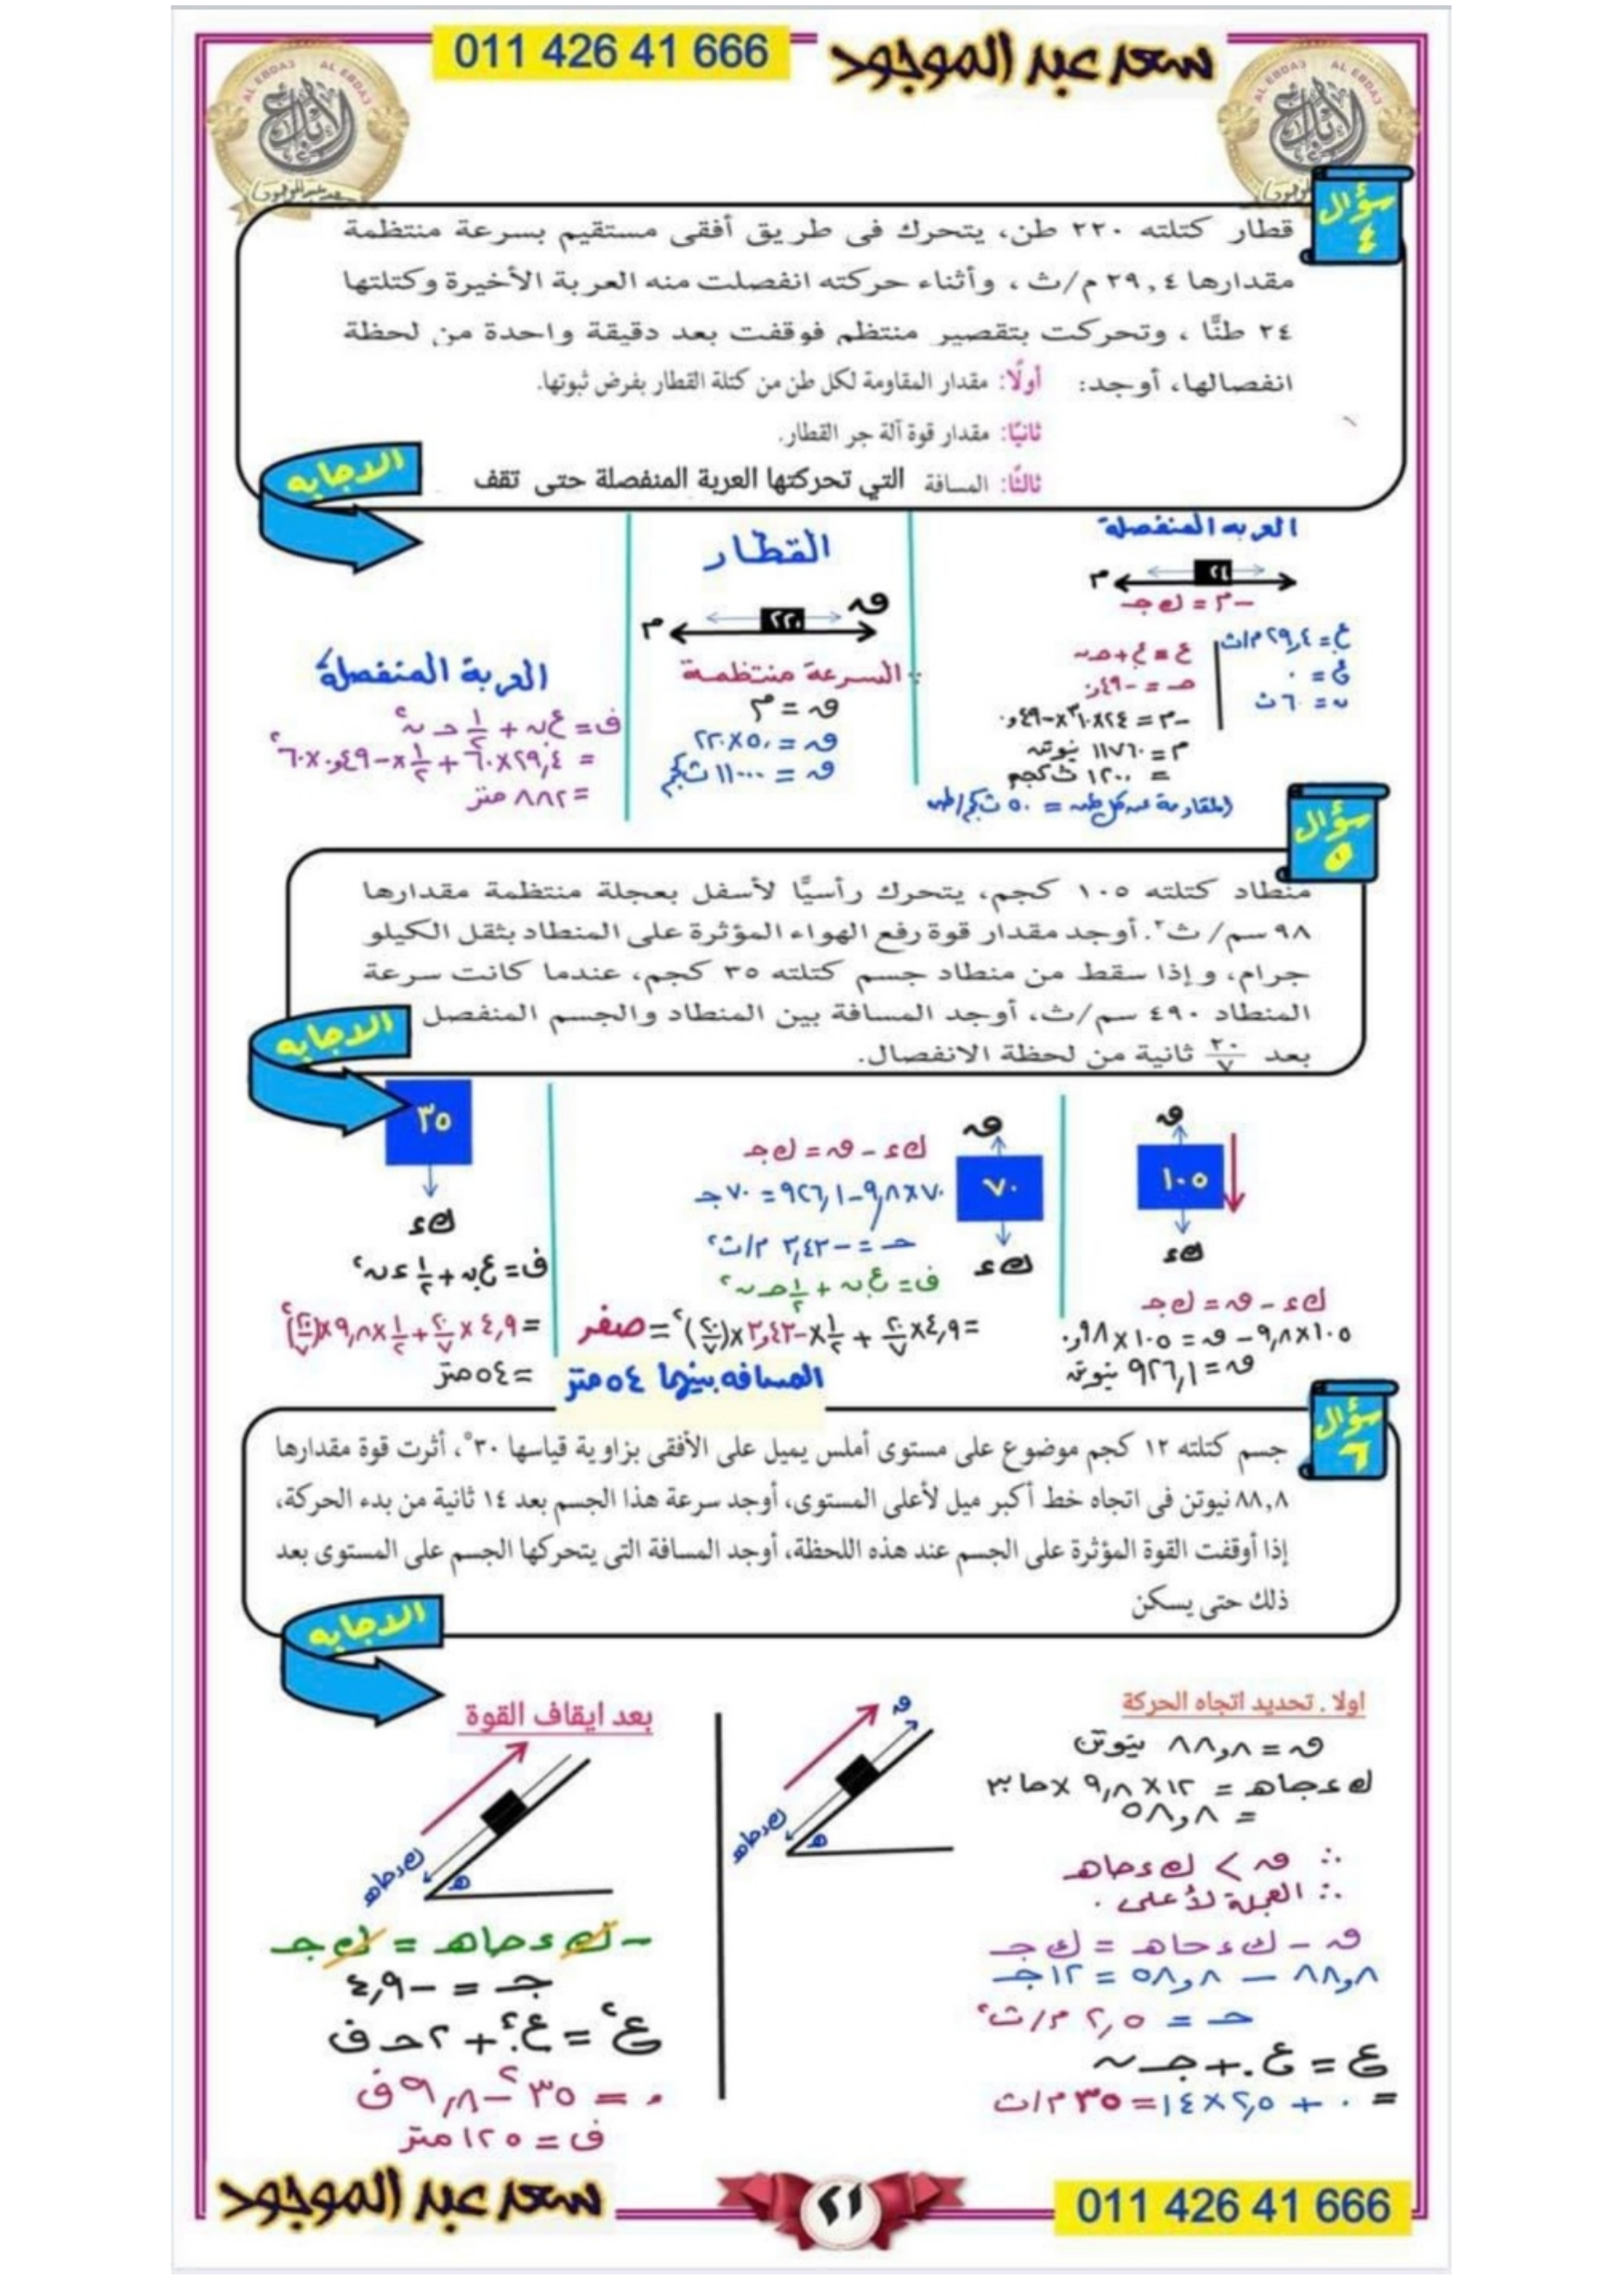 011 426 41 666
سعد عبد الموجود
AL EBDA3 AL EBDA3
الإبداع
سعد عبد الموجود
AL EBDA3 AL EBDA3
الإبداع
سؤال
٤
قطار كتلته ٢٢٠ طن، يتحرك فى طريق أفقى مستقيم بسرعة منتظمة
مقدارها ٢٩,٤ م/ث ، وأثناء حركته انفصلت منه العربة الأخيرة وكتلتها
٢٤ طنًّا ، وتحركت بتقصير منتظم فوقفت بعد دقيقة واحدة من لحظة
انفصالها، أوجد: أولًا: مقدار المقاومة لكل طن من كتلة القطار بفرض ثبوتها.
ثانيًا: مقدار قوة آلة جر القطار.
ثالثًا: المسافة التي تحركتها العربة المنفصلة حتى تقف
الاجابه
العربه المنفصلة
م ٢٤
-م = ك جـ
ع. = ٢٩,٤ م/ث
ع = ٠
ن = ٦٠ ث
ع = ع. + حـ ن
حـ = -٤٩,٠
-م = ٢٤×١٠^٣×-٤٩,٠
م = ١١٧٦٠ نيوتن
= ١٢٠٠ ث كجم
المقاومة عن كل طن = ٥٠ ث كجم/طن
القطار
م ٢٢٠ ق
∵ السرعة منتظمة
ق = م
ق = ٥٠ × ٢٢٠
ق = ١١٠٠٠ ث كجم
العربة المنفصلة
ف = ع. ن + ١/٢ حـ ن٢
= ٢٩,٤×٦٠ + ١/٢ × -٤٩,٠ × ٦٠٢
= ٨٨٢ متر
سؤال
٥
منطاد كتلته ١٠٥ كجم، يتحرك رأسيًّا لأسفل بعجلة منتظمة مقدارها
٩٨ سم/ ث٢. أوجد مقدار قوة رفع الهواء المؤثرة على المنطاد بثقل الكيلو
جرام، وإذا سقط من منطاد جسم كتلته ٣٥ كجم، عندما كانت سرعة
المنطاد ٤٩٠ سم/ث، أوجد المسافة بين المنطاد والجسم المنفصل
بعد ٢٠/٧ ثانية من لحظة الانفصال.
الاجابه
ق
١٠٥
ك ء
ك ء - ق = ك جـ
١٠٥×٩,٨ - ق = ١٠٥ × ٩٨,٠
ق = ٩٢٦,١ نيوتن
ق
٧٠
ك ء
ك ء - ق = ك جـ
٧٠×٩,٨ - ٩٢٦,١ = ٧٠ جـ
حـ = -٣,٤٣ م/ث٢
ف = ع. ن + ١/٢ حـ ن٢
= ٤,٩×٢٠/٧ + ١/٢ × -٣,٤٣ × (٢٠/٧)٢ = صفر
المسافه بينهما ٥٤ متر
٣٥
ك ء
ف = ع. ن + ١/٢ ء ن٢
= ٤,٩ × ٢٠/٧ + ١/٢ × ٩,٨ × (٢٠/٧)٢
= ٥٤ متر
سؤال
٦
جسم كتلته ١٢ كجم موضوع على مستوى أملس يميل على الأفقى بزاوية قياسها ٣٠°، أثرت قوة مقدارها
٨٨,٨ نيوتن فى اتجاه خط أكبر ميل لأعلى المستوى، أوجد سرعة هذا الجسم بعد ١٤ ثانية من بدء الحركة،
إذا أوقفت القوة المؤثرة على الجسم عند هذه اللحظة، أوجد المسافة التى يتحركها الجسم على المستوى بعد
ذلك حتى يسكن
الاجابه
اولا . تحديد اتجاه الحركة
ق = ٨٨,٨ نيوتن
ك ء جاهـ = ١٢ × ٩,٨ × جا ٣٠
= ٥٨,٨
∴ ق > ك ء جاهـ
∴ العجلة لأعلى .
ق - ك ء جاهـ = ك جـ
٨٨,٨ - ٥٨,٨ = ١٢ جـ
حـ = ٢,٥ م/ث٢
ع = ع. + جـ ن
= ٠ + ٢,٥×١٤ = ٣٥ م/ث
ق
ك ء جاهـ
هـ
بعد ايقاف القوة
ك ء جاهـ
هـ
- ك ء جاهـ = ك جـ
جـ = -٤,٩
ع٢ = ع.٢ + ٢ حـ ف
٠ = ٣٥٢ - ٩,٨ ف
ف = ١٢٥ متر
سعد عبد الموجود
٢١
011 426 41 666